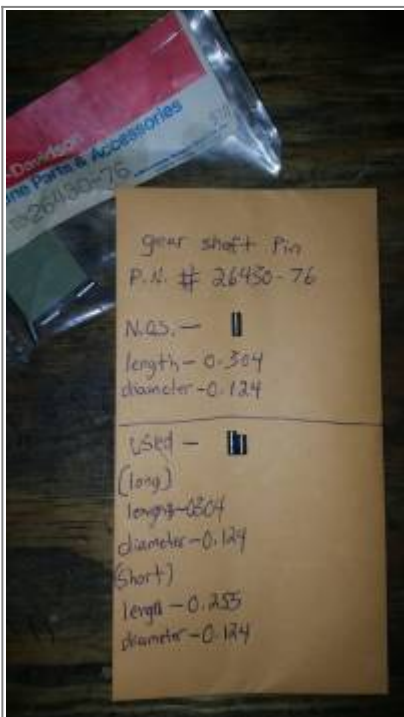 -Davidson
ine Parts & Accessories
26430-76
gear shaft Pin
P.N. # 26430-76
N.O.S. -
length - 0.304
diameter - 0.124
Used -
(long)
length - 0304
diameter - 0.124
(short)
length - 0.255
diameter - 0.124